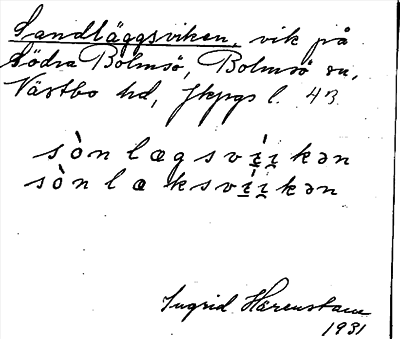 Sandläggsviken, vik på
Södra Bolmsö, Bolmsö sn,
Västbo hd, Jkpgs l. 43
sònlægsví̯i̯kən
sònlæksví̯i̯kən
Ingrid Härenstam
1931